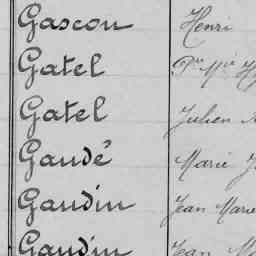 Gascon Henri
Gatel Pre Mie
Gatel Julien
Gaudé Marie J
Gaudin Jean Marie
Gaudin Jean M